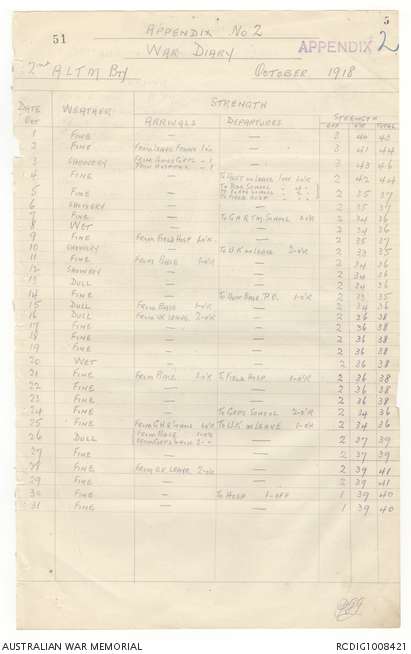 51
5
APPENDIX No 2
WAR DIARY
APPENDIX 2
2nd A.L.T.M. Bty OCTOBER 1918
STRENGTH
DATE WEATHER ARRIVALS DEPARTURES STRENGTH
Oct OFF O/R TOTAL
1 FINE — — 3 40 43
2 FINE FROM LEAVE FRANCE 1 O/R — 3 41 44
3 SHOWERY — 3 43 46
4 FINE — 2 42 44
5 FINE — 2 35 37
6 SHOWERY — — 2 35 37
7 FINE — 2 34 36
8 WET — — 2 34 36
9 FINE FROM FIELD HOSP 1 O/R — 2 35 37
10 SHOWERY — TO U.K. ON LEAVE 2 O/R 2 33 35
11 FINE FROM BASE 1 O/R — 2 34 36
12 SHOWERY — — 2 34 36
13 DULL — — 2 34 36
14 FINE — 1 O/R 2 33 35
15 DULL FROM BASE 1 O/R — 2 34 36
16 DULL FROM UK LEAVE 2 O/R — 2 36 38
17 FINE — — 2 36 38
18 FINE — — 2 36 38
19 FINE — — 2 36 38
20 WET — — 2 36 38
21 FINE FROM BASE 1 O/R TO FIELD HOSP. 1 O/R 2 36 38
22 FINE — — 2 36 38
23 FINE — — 2 36 38
24 FINE — TO CORPS SCHOOL 2 O/R 2 34 36
25 FINE TO U.K. ON LEAVE 1 O/R 2 34 36
26 DULL FROM BASE — 2 37 39
27 FINE — — 2 37 39
28 FINE FROM U.K LEAVE 2 O/R — 2 39 41
29 FINE — — 2 39 41
30 FINE — TO HOSP 1 OFF 1 39 40
31 FINE — — 1 39 40
AUSTRALIAN WAR MEMORIAL RCDIG1008421